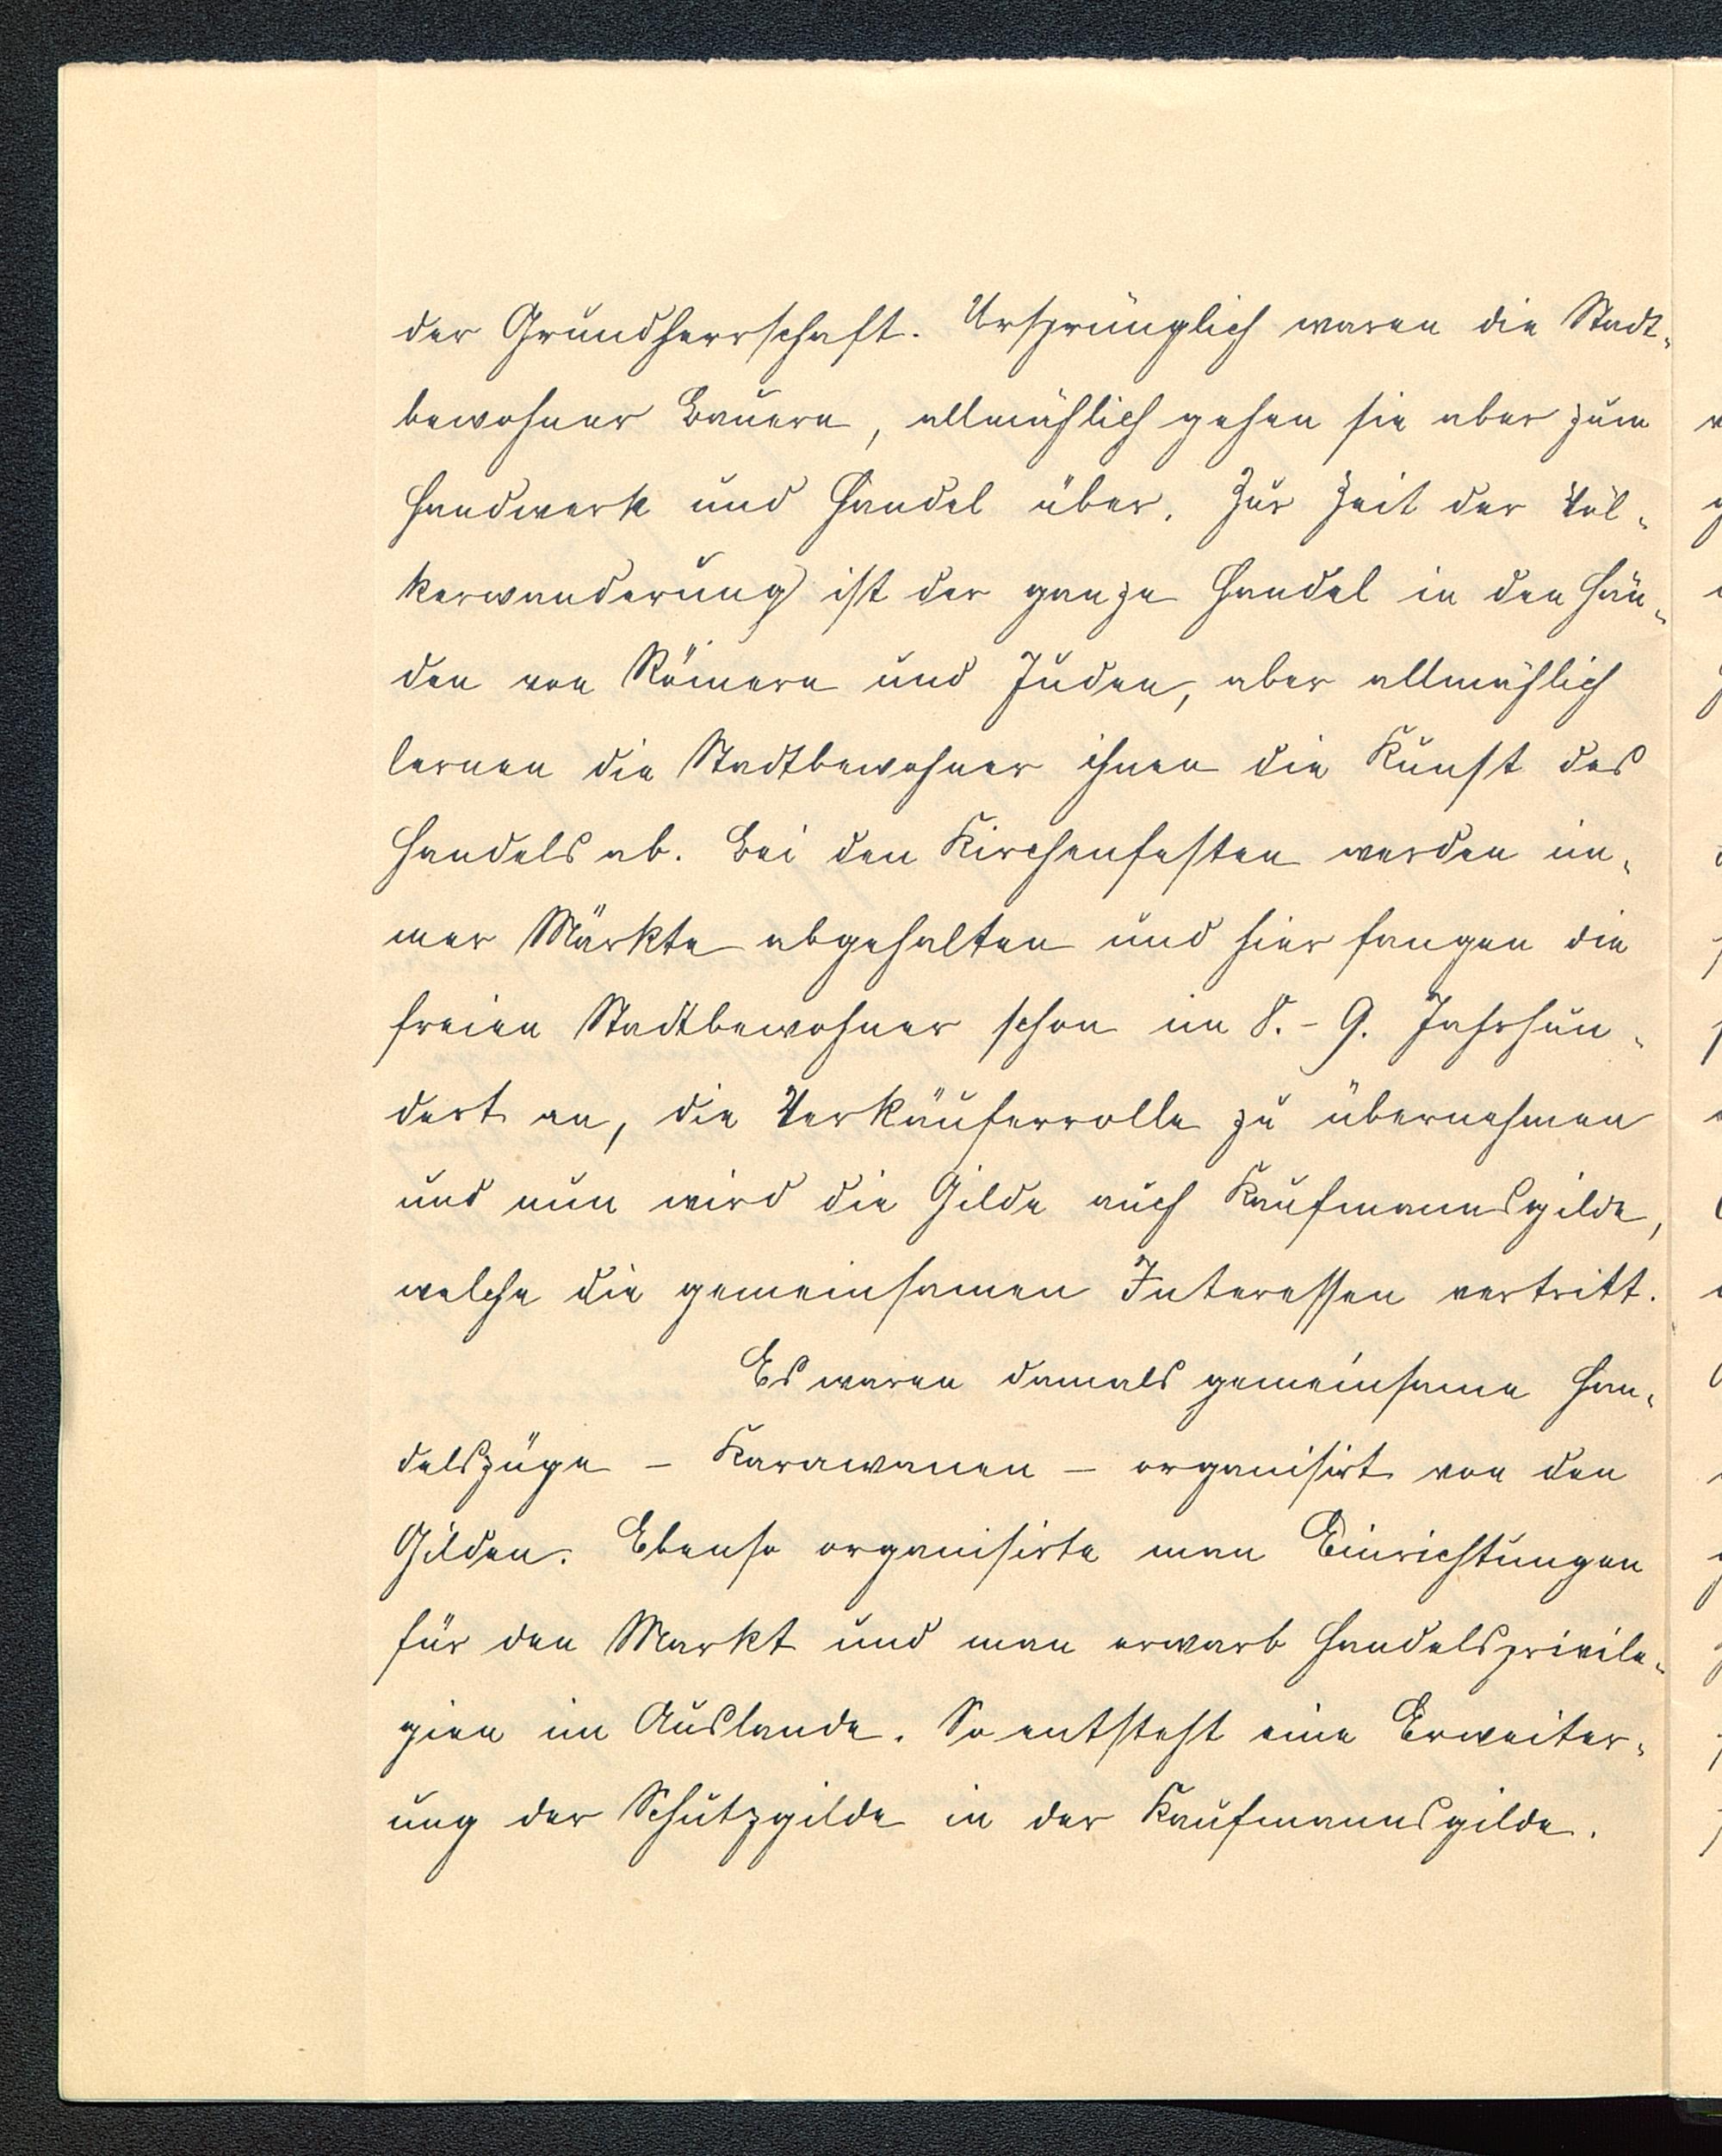 der Grundherrschaft. Ursprünglich waren die Stadt-
bewohner Bauern, allmählich gehen sie aber zum
Handwerk und Handel über. Zur Zeit der Völ-
kerwanderung ist der ganze Handel in den Hän-
den von Römern und Juden, aber allmählich
lernen die Stadtbewohner ihnen die Kunst des
Handels ab. Bei den Kirchenfesten werden im-
mer Märkte abgehalten und hier fangen die
freien Stadtbewohner schon im 8.-9. Jahrhun-
dert an, die Verkäuferrolle zu übernehmen
und nun wird die Gilde auch Kaufmannsgilde,
welche die gemeinsamen Interessen vertritt.
Es waren damals gemeinsame Han-
delszüge - Karawanen - organisirt von den
Gilden. Ebenso organisirte man Einrichtungen
für den Markt und man erwarb Handelsprivile-
gien im Auslande. So entsteht eine Erweiter-
ung der Schutzgilde in der Kaufmannsgilde.